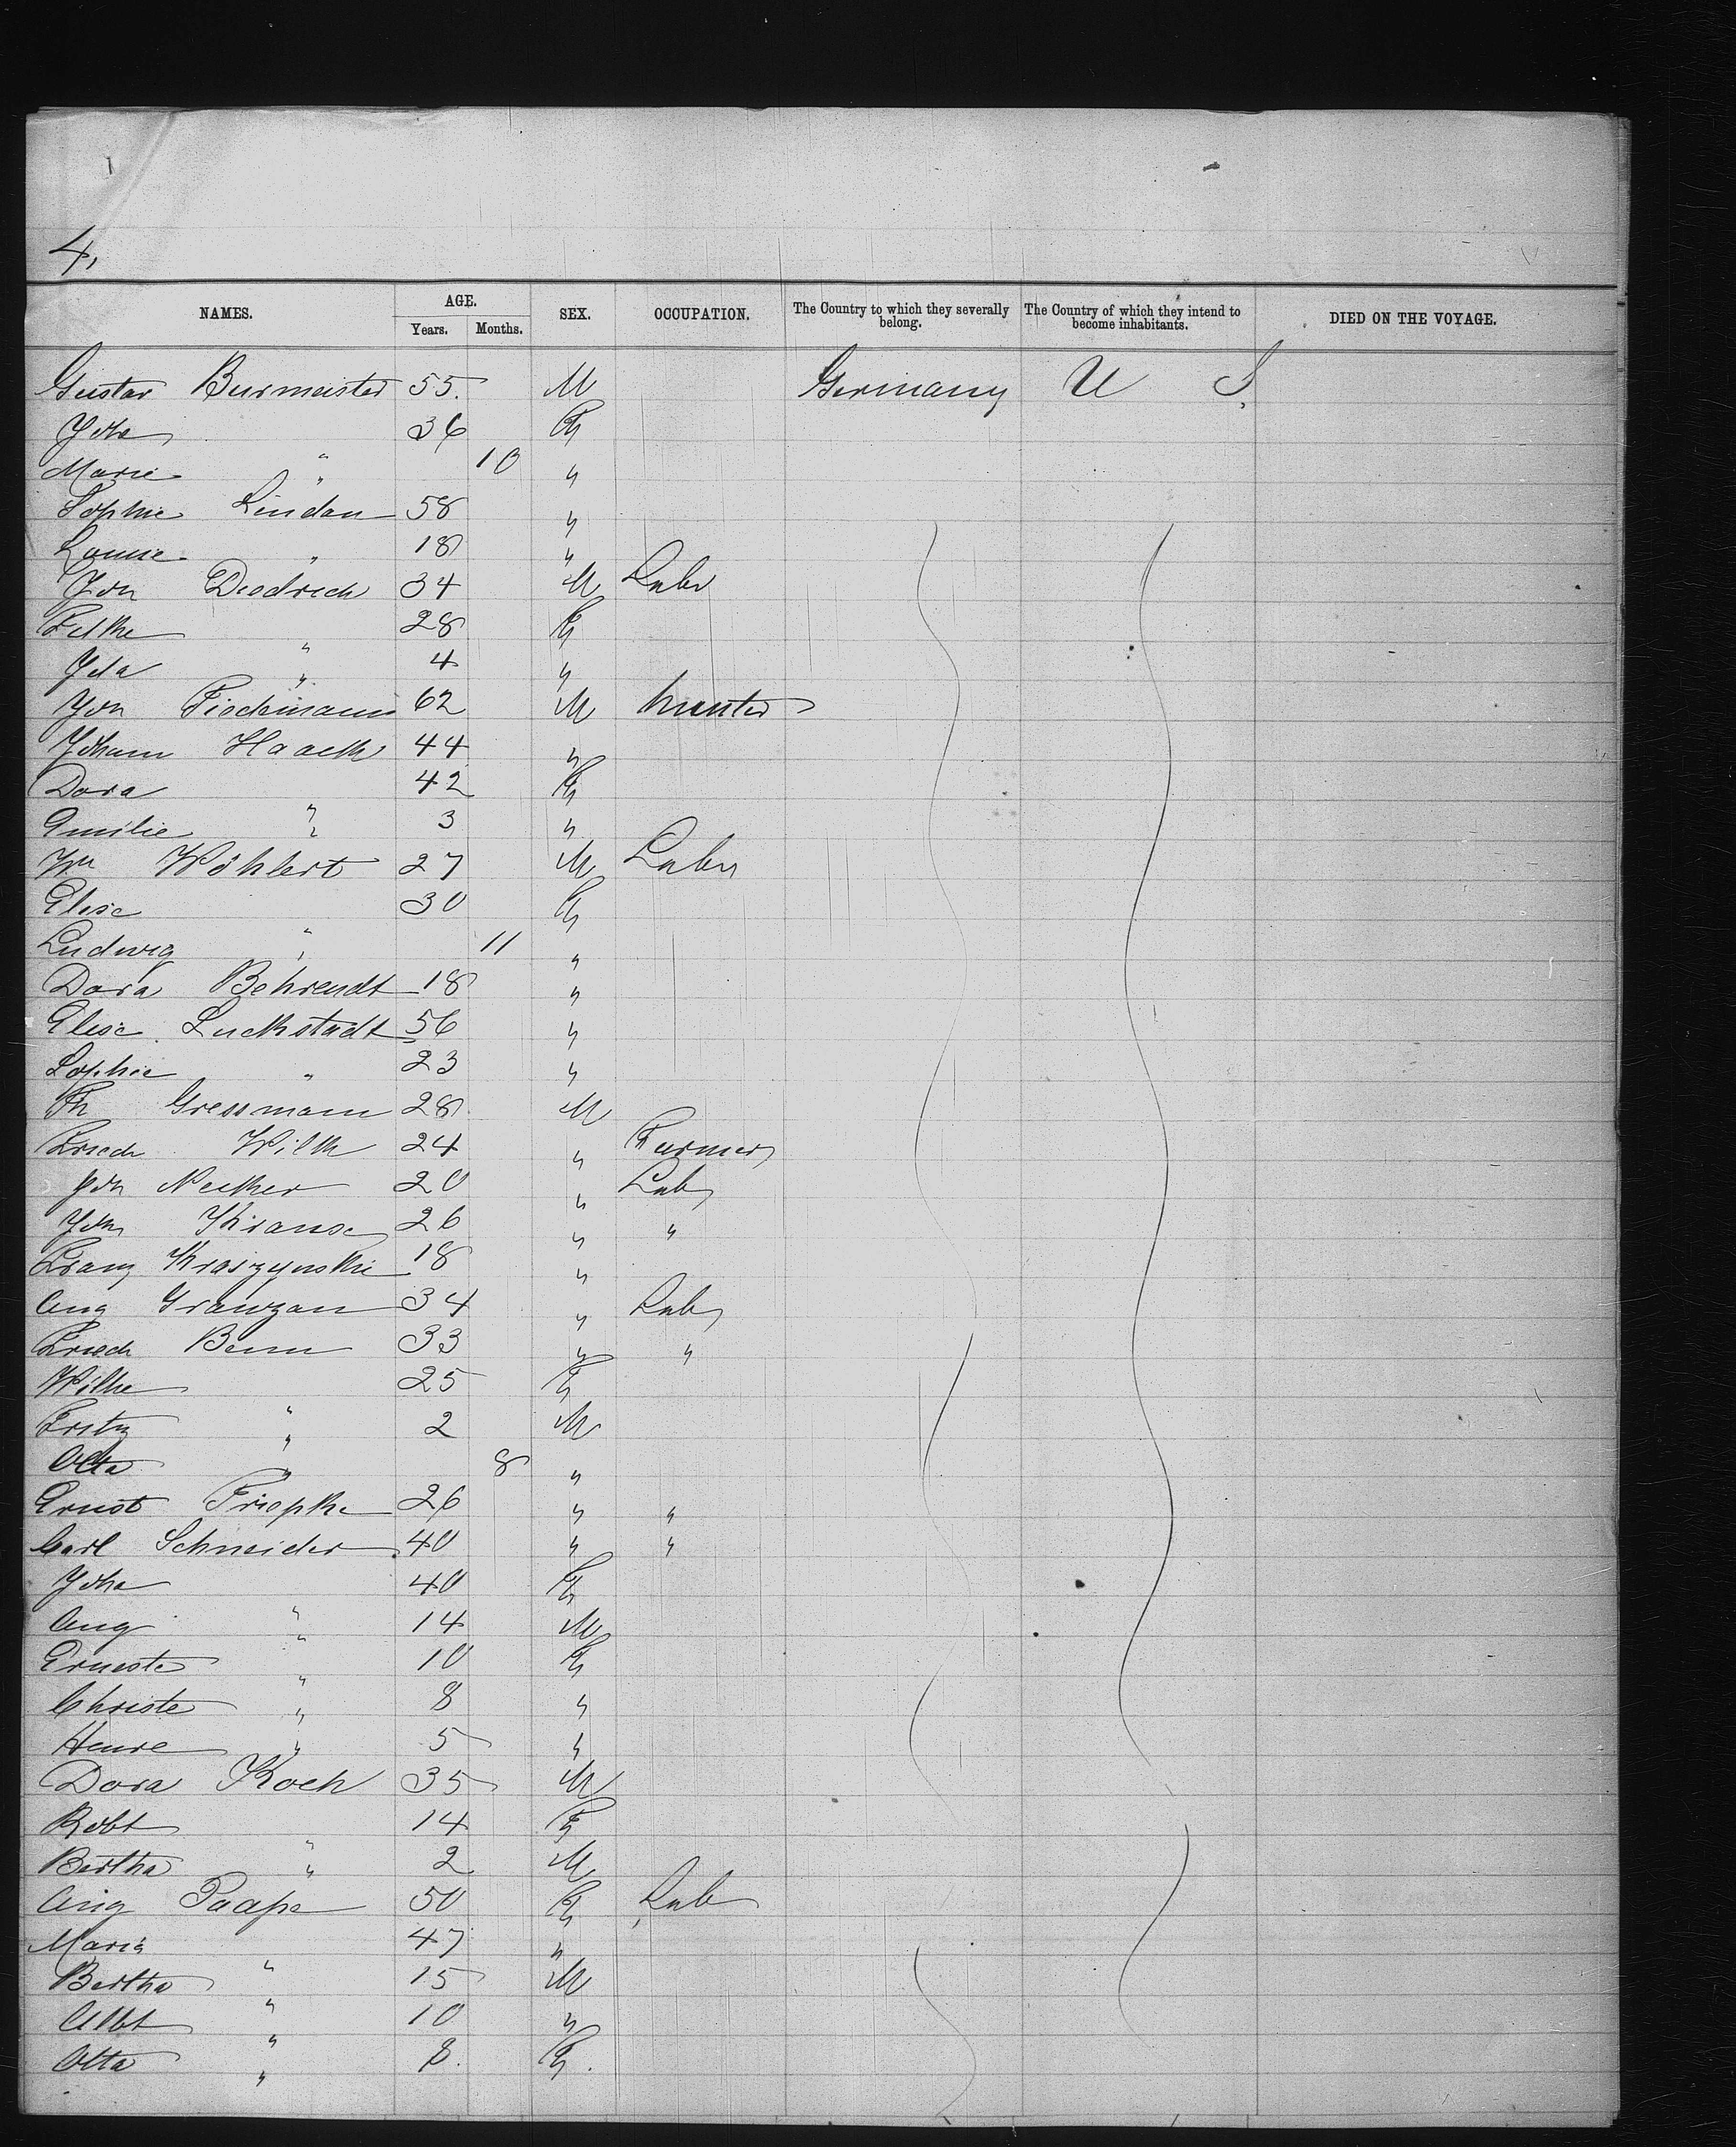 4,
NAMES. AGE. SEX. OCCUPATION. The Country to which they severally belong. The Country of which they intend to become inhabitants. DIED ON THE VOYAGE.
Years. Months.
Gustav Burmeister 55. M Germany U S.
36 F
Marie " 10 "
Sophie Lindau 58 "
Louise " 18 "
Joh Diedrich 34 M Labr
28 F
Ida " 4 "
Joh Tiedemann 62 M hunter
Johann Haack 44 "
Dora 42 F
Emilie " 3 "
Wm Wöhlert 27 M Labr
Elise 30 F
Ludwig " 11 "
Dora Behrendt 18 "
Elise Luckstadt 56 "
Sophie " 23 "
Th Gressmann 28 M
Friedr Wilk 24 " Farmer
Joh 20 " Lab
Joh Krause 26 " "
Franz Kraszynski 18 "
Aug Grawzan 34 " Lab
Friedr Benn 33 " "
Wilhe 25 F
Fritz " 2 M
Otto " 8 "
Ernst Friepke 26 " "
Carl Schneider 40 " "
Joha 40 F
Aug " 14 M
Erneste " 10 F
Christe " 8 "
Henre " 5 "
Dora Koch 35 M
Robt " 14 F
Bertha " 2 M
Aug Paape 50 F Lab
Maria 47 "
Bertha " 15 M
Albt " 10 "
Otto " 8. F.